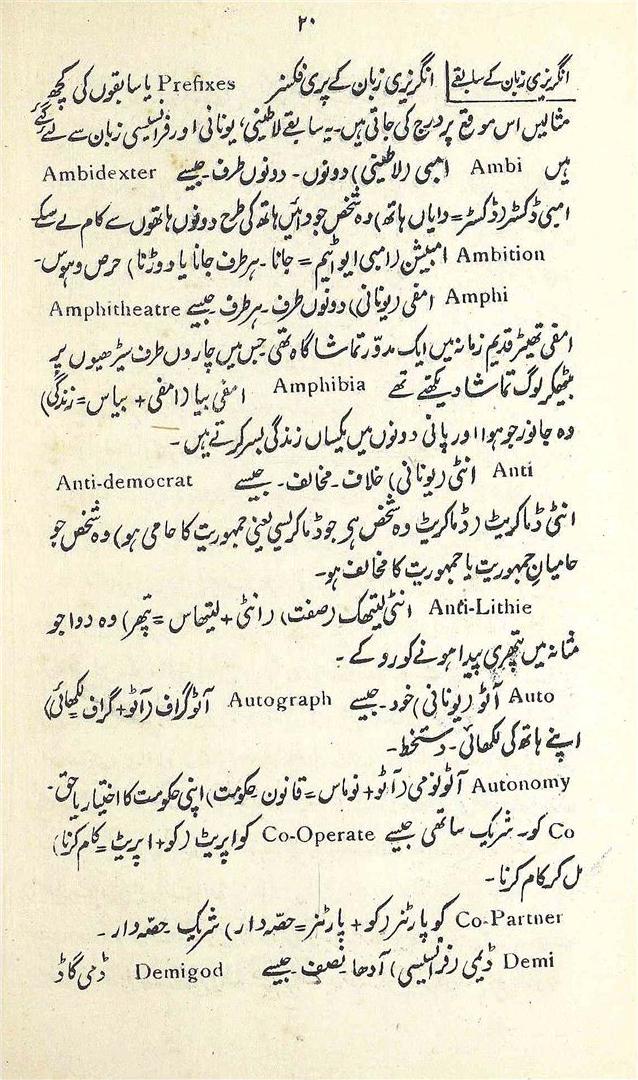 ۲۰
انگریزی زبان کے سابقے انگریزی زبان کے پری فکسز Prefixes یا سابقوں کی کچھ
مثالیں اس موقع پر درج کی جاتی ہیں۔ یہ سابقے لاطینی، یونانی اور فرانسیسی زبان سے لئے گئے
ہیں Ambi امبی (لاطینی) دونوں۔ دونوں طرف۔ جیسے Ambidexter
امبی ڈکسٹر (ڈکسٹر= دایاں ہاتھ) وہ شخص جو دائیں ہاتھ کی طرح دونوں ہاتھوں سے کام لے سکے
Ambition امبیشن (امبی ایو ایٹم = جانا۔ ہر طرف جانا یا دوڑنا) حرص و ہوس۔
Amphi امفی (یونانی) دونوں طرف۔ ہر طرف۔ جیسے Amphitheatre
امفی تھیٹر قدیم زمانہ میں ایک مدوّر تماشا گاہ تھی جس میں چاروں طرف سیڑھیوں پر
بیٹھ کر لوگ تماشا دیکھتے تھے Amphibia امفی بیا (امفی + بیاس = زندگی)
وہ جانور جو ہوا اور پانی دونوں میں یکساں زندگی بسر کرتے ہیں۔
Anti انٹی (یونانی) خلاف۔ مخالف۔ جیسے Anti-democrat
انٹی ڈماکریٹ (ڈماکریٹ وہ شخص ہی جو ڈماکریسی یعنی جمہوریت کا حامی ہو) وہ شخص جو
حامیانِ جمہوریت یا جمہوریت کا مخالف ہو۔
Anti-Lithie انٹی لیتھک (صفت) (انٹی + لیتھاس = پتھر) وہ دوا جو
مثانہ میں پتھری پیدا ہونے کو روکے۔
Auto آٹو (یونانی) خود۔ جیسے Autograph آٹوگراف (آٹو + گراف = لکھائی)
اپنے ہاتھ کی لکھائی۔ دستخط۔
Autonomy آٹونومی (آٹو + نوماس = قانون۔ حکومت) اپنی حکومت کا اختیار یا حق۔
Co کو۔ شریک۔ ساتھی جیسے Co-Operate کو اپریٹ (کو + اپریٹ = کام کرنا)
مل کر کام کرنا۔
Co-Partner کو پارٹنر (کو + پارٹنر = حصّہ دار) شریک۔ حصّہ دار۔
Demi ڈیمی (فرانسیسی) آدھا۔ نصف۔ جیسے Demigod ڈمی گاڈ